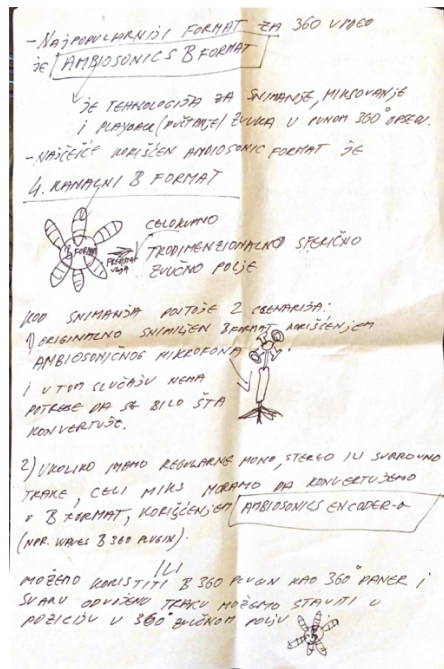 - NAJPOPULARNIJI FORMAT ZA 360 VIDEO
JE AMBIOSONICS B FORMAT
JE TEHNOLOGIJA ZA SNIMANJE, MIKSOVANJE
I PLAYBACK (PUŠTANJE) ZVUKA U PUNOM 360° OPSEGU.
- NAJČEŠĆE KORIŠĆEN AMBIOSONIC FORMAT JE
4. KANALNI B FORMAT
B FORMAT
PREDSTAVLJA
CELOKUPNO
TRODIMENZIONALNO SFERIČNO
ZVUČNO POLJE
KOD SNIMANJA POSTOJE 2 SCENARIJA:
1) ORIGINALNO SNIMLJEN B FORMAT KORIŠĆENJEM
AMBIOSONIČNOG MIKROFONA
I U TOM SLUČAJU NEMA
POTREBE DA SE BILO ŠTA
KONVERTUJE.
2) UKOLIKO IMAMO REGULARNE MONO, STEREO ILI SURROUND
TRAKE, CELI MIKS MORAMO DA KONVERTUJEMO
U B FORMAT, KORIŠĆENJEM AMBIOSONICS ENCODER-A
(NPR. WAVES B 360 PLUGIN).
ILI
MOŽEMO KORISTITI B 360 PLUGIN KAO 360° PANER I
SVAKU ODVOJENU TRAKU MOŽEMO STAVITI U
POZICIJU U 360° ZVUČNOM POLJU